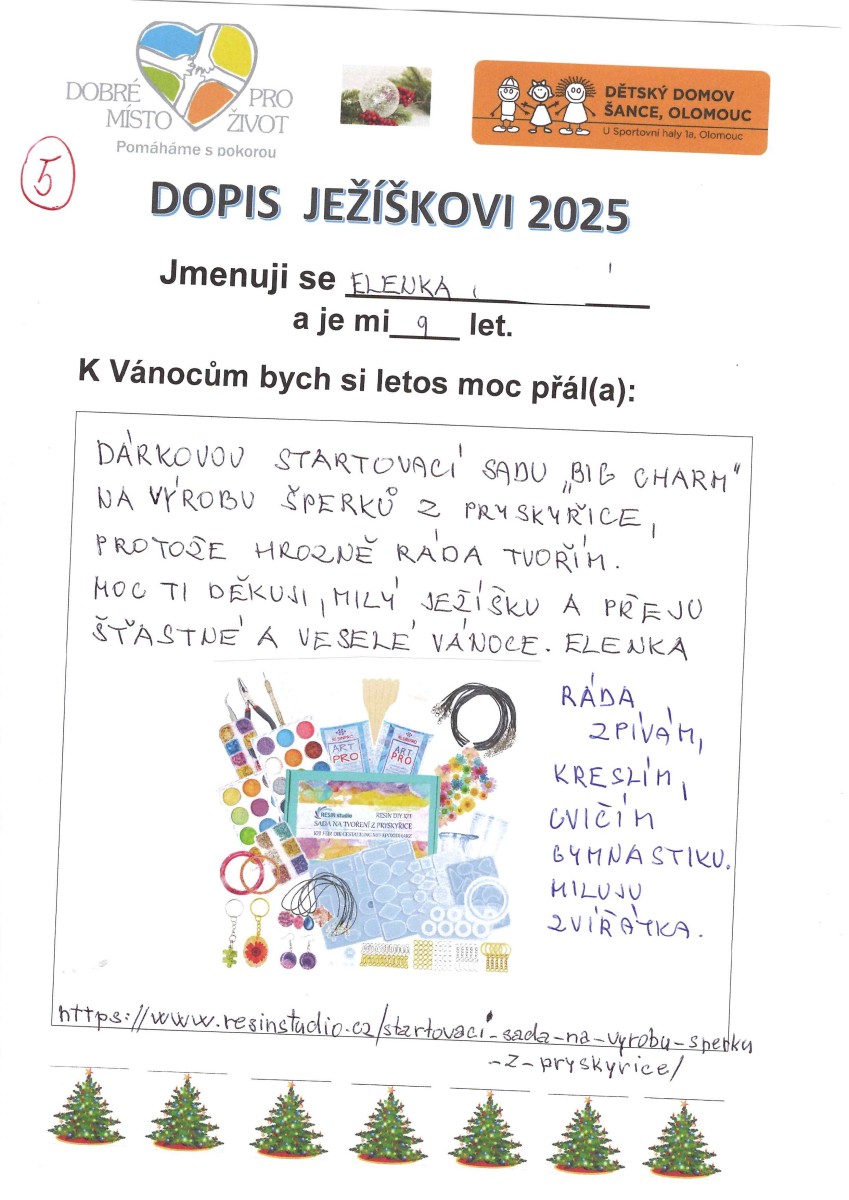 DOBRÉ PRO
MÍSTO ŽIVOT
Pomáháme s pokorou
DĚTSKÝ DOMOV
ŠANCE, OLOMOUC
U Sportovní haly 1a, Olomouc
5
DOPIS JEŽÍŠKOVI 2025
Jmenuji se ELENKA
a je mi 9 let.
K Vánocům bych si letos moc přál(a):
DÁRKOVOU STARTOVACÍ SADU „BIG CHARM“
NA VÝROBU ŠPERKŮ Z PRYSKYŘICE,
PROTOŽE HROZNĚ RÁDA TVOŘÍM.
MOC TI DĚKUJI, MILÝ JEŽÍŠKU A PŘEJU
ŠŤASTNÉ A VESELÉ VÁNOCE. ELENKA
RÁDA
ZPÍVÁM,
KRESLÍM,
CVIČÍM
GYMNASTIKU.
MILUJU
ZVÍŘÁTKA.
ART
PRO
ART
PRO
RESIN studio RESIN DIY KIT
SADA NA TVOŘENÍ Z PRYSKYŘICE
https://www.resinstudio.cz/startovací-sada-na-vyrobu-sperku
-z-pryskyrice/